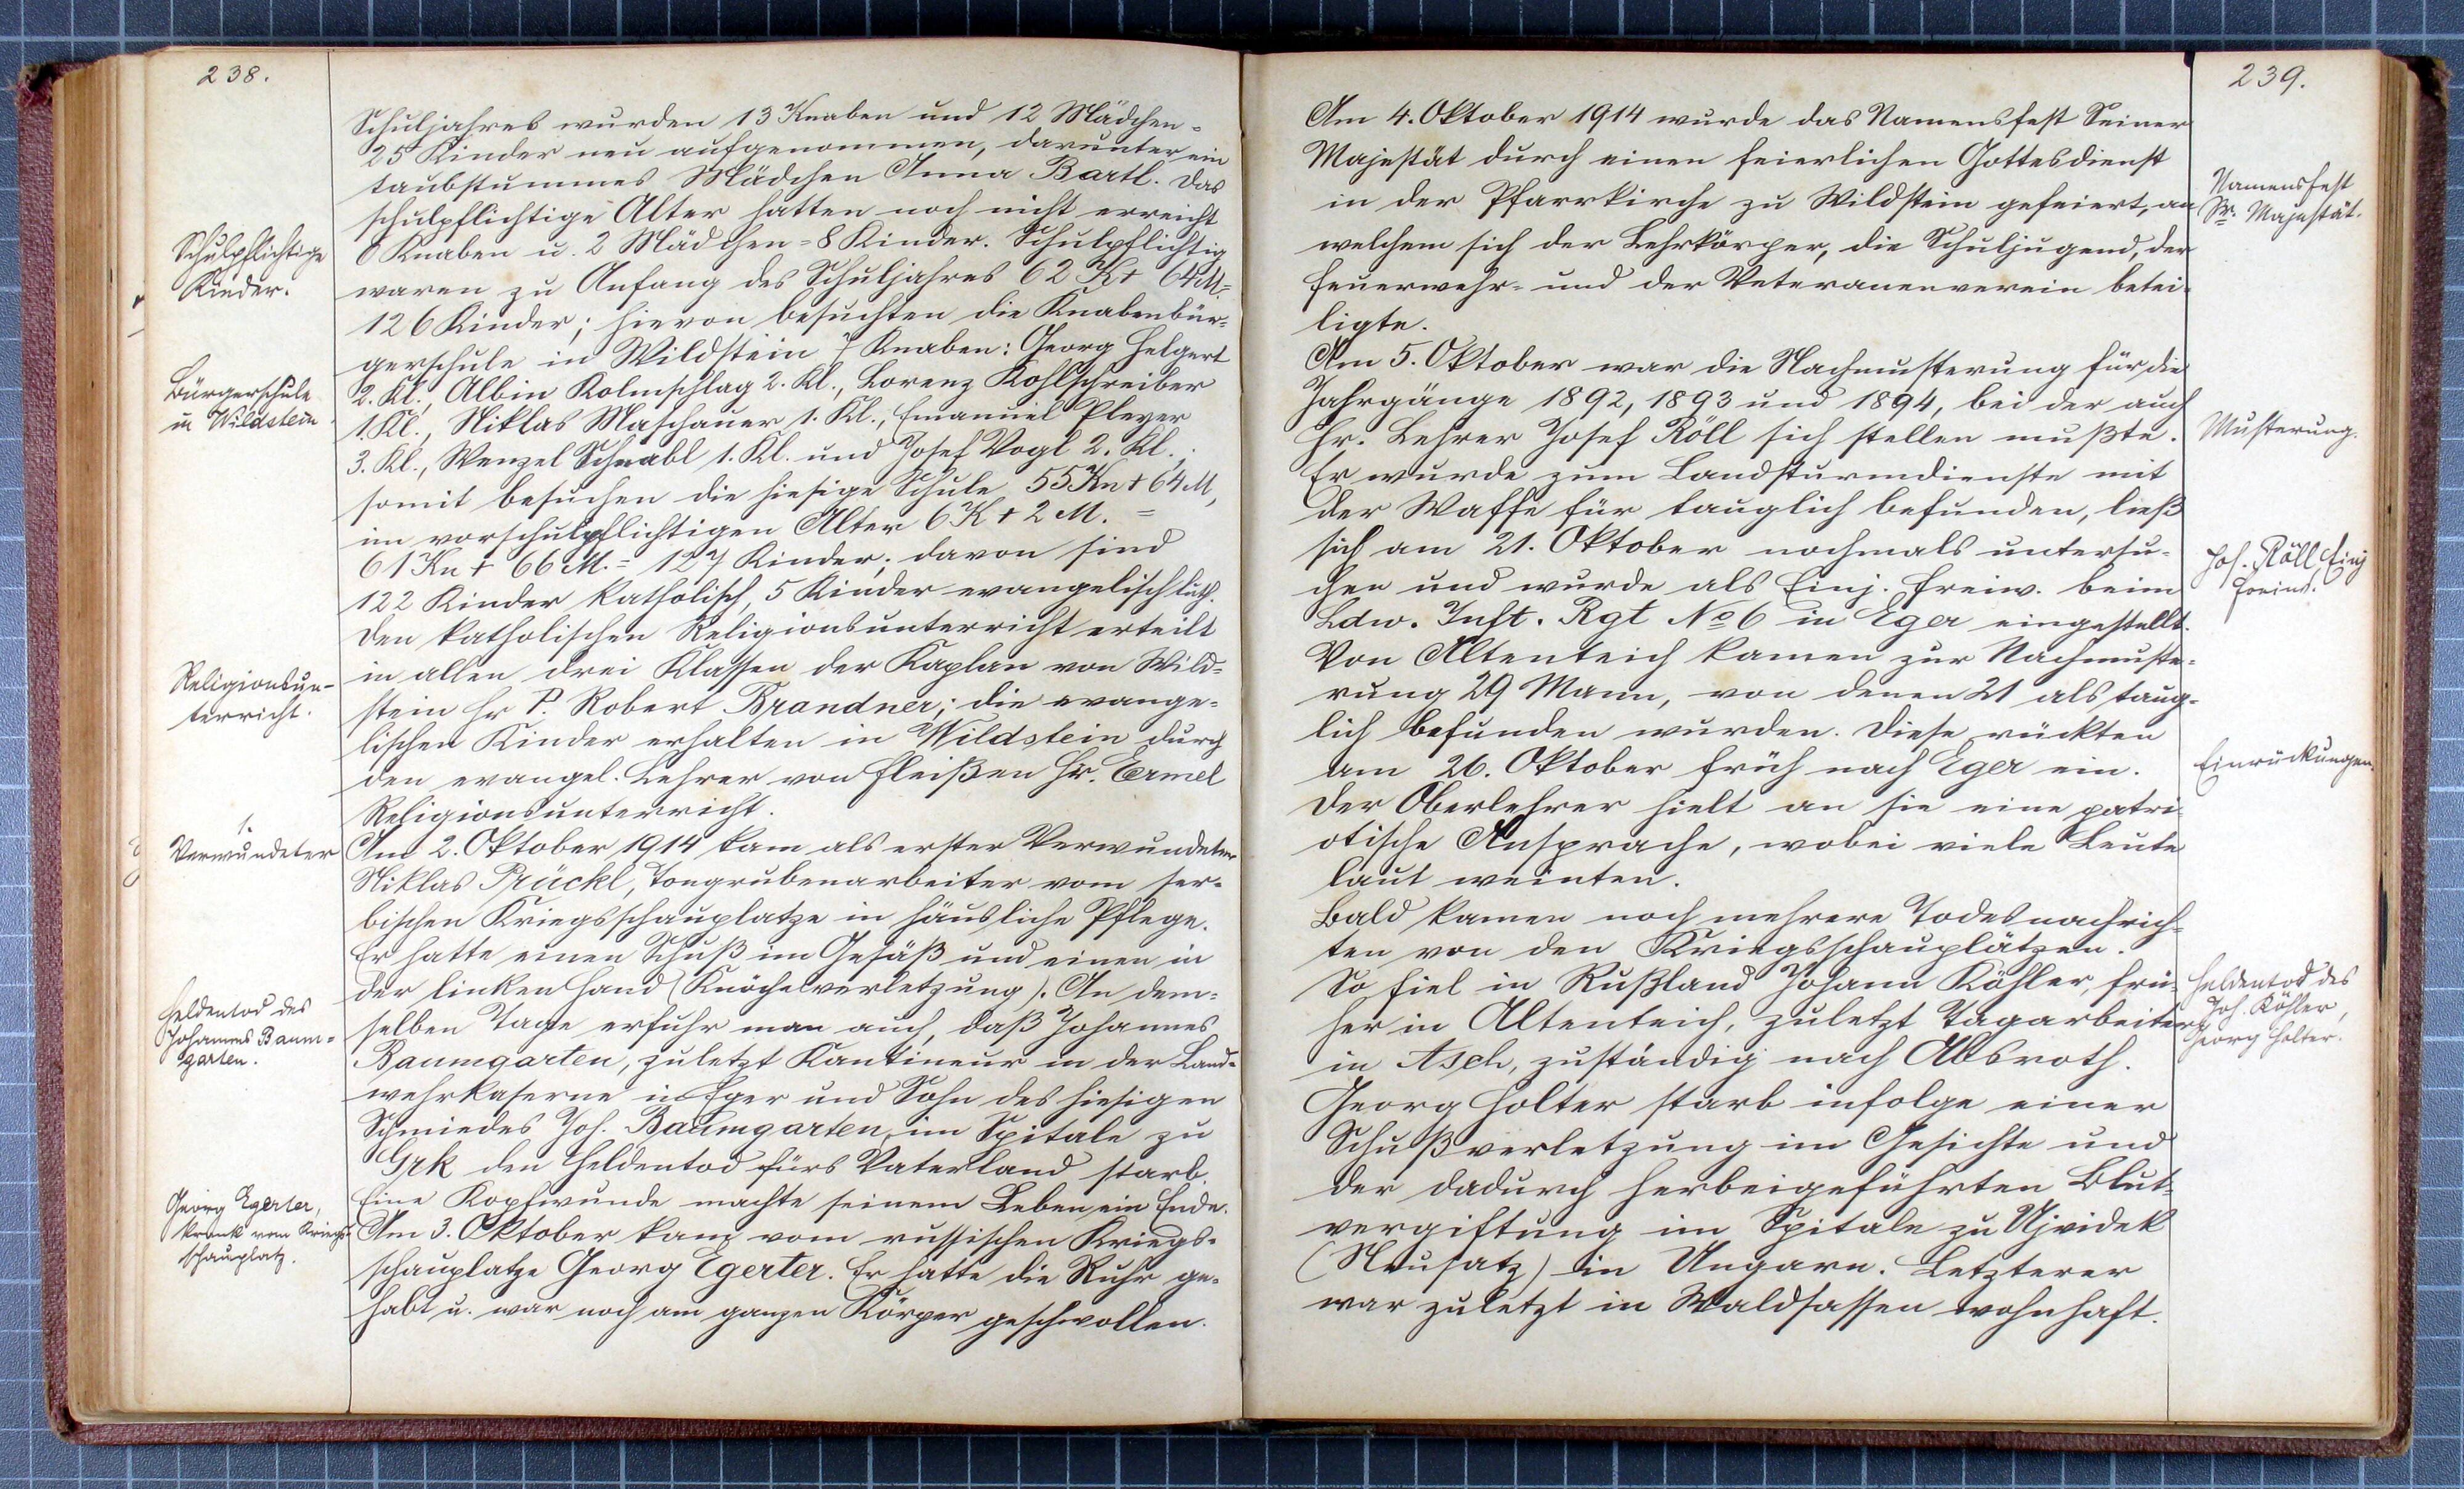 238.
Schuljahres wurden 13 Knaben und 12 Mädchen =
25 Kinder neu aufgenommen, darunter ein
taubstummes Mädchen Anna Bartl. Das
schulpflichtige Alter hatten noch nicht erreicht
6 Knaben u. 2 Mädchen = 8 Kinder. Schulpflichtig
Schulpflichtige
Kinder.
waren zu Anfang des Schuljahres 62 K + 64 M. =
126 Kinder; hievon besuchten die Knabenbür-
gerschule in Wildstein 7 Knaben: Georg Helgert
Bürgerschule
in Wildstein
2. Kl., Albin Kolmschlag 2. Kl., Lorenz Kohlschreiber
1. Kl., Niklas Maschauer 1. Kl., Emanuel Pleyer
3. Kl., Wenzel Schnabl 1. Kl. und Josef Vogl 2. Kl.;
somit besuchen die hiesige Schule 55 Kn + 64 M,
im vorschulpflichtigen Alter 6 K + 2 M. =
61 Kn + 66 M. = 127 Kinder; davon sind
122 Kinder katholisch, 5 Kinder evangelisch luth.
Den katholischen Religionsunterricht erteilt
Religionsun-
terricht.
in allen drei Klassen der Kaplan von Wild-
stein Hr P. Robert Brandner; die evange-
lischen Kinder erhalten in Wildstein durch
den evangel. Lehrer von Fleißen Hr. Ermel
Religionsunterricht.
1.
Verwundeter
Am 2. Oktober 1914 kam als erster Verwundeter
Niklas Prückl, Tongrubenarbeiter vom ser-
bischen Kriegsschauplatze in häusliche Pflege.
Er hatte einen Schuß im Gesäß und einen in
der linken Hand (Knöchelverletzung). An dem-
Heldentod des
Johannes Baum-
garten.
selben Tage erfuhr man auch, daß Johannes
Baumgarten, zuletzt Kantineur in der Land-
wehrkaserne in Eger und Sohn des hiesigen
Schmiedes Joh. Baumgarten, im Spitale zu
Grk den Heldentod fürs Vaterland starb.
Eine Kopfwunde machte seinem Leben ein Ende.
Georg Egerter,
krank vom Kriegs-
schauplatz.
Am 3. Oktober kam vom russischen Kriegs-
schauplatze Georg Egerter. Er hatte die Ruhr ge-
habt u. war noch am ganzen Körper geschwollen.
239.
Am 4. Oktober 1914 wurde das Namensfest Seiner
Majestät durch einen feierlichen Gottesdienst
in der Pfarrkirche zu Wildstein gefeiert, an
Namensfest
Sr. Majestät.
welchem sich der Lehrkörper, die Schuljugend, der
Feuerwehr- und der Veteranenverein betei-
ligte.
Am 5. Oktober war die Nachmusterung für die
Jahrgänge 1892, 1893 und 1894, bei der auch
Hr. Lehrer Josef Röll sich stellen mußte.
Musterung.
Er wurde zum Landsturmdienste mit
der Waffe für tauglich befunden, ließ
sich am 21. Oktober nochmals untersu-
Jos. Röll Einj
Freiw.
chen und wurde als Einj. Freiw. beim
Ldw. Inft. Rgt No 6 in Eger eingestellt.
Von Altenteich kamen zur Nachmuste-
rung 29 Mann, von denen 21 als taug-
lich befunden wurden. Diese rückten
am 26. Oktober früh nach Eger ein.
Einrückungen.
Der Oberlehrer hielt an sie eine patri-
otische Ansprache, wobei viele Leute
laut weinten.
Bald kamen noch mehrere Todesnachrich-
ten von den Kriegsschauplätzen.
So fiel in Rußland Johann Köhler, frü-
Heldentod des
Joh. Köhler,
Georg Holter.
her in Altenteich, zuletzt Tagarbeiter
in Asch, zuständig nach Absroth.
Georg Holter starb infolge einer
Schußverletzung im Gesichte und
der dadurch herbeigeführten Blut-
vergiftung im Spitale zu Ujvidek
(Neusatz) in Ungarn. Letzterer
war zuletzt in Waldsassen wohnhaft.